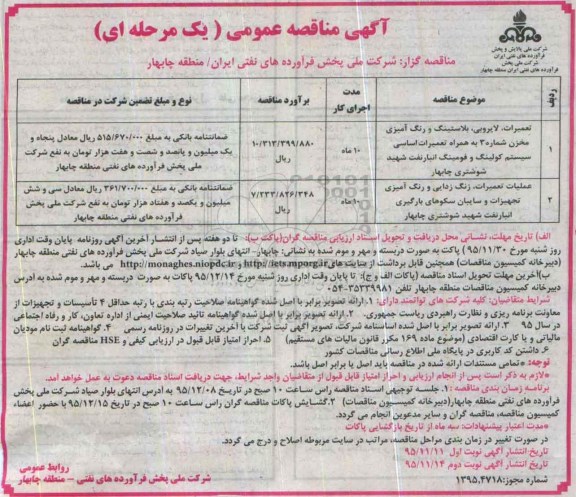 آگهی مناقصه عمومی ( یک مرحله ای)
شرکت ملی پالایش و پخش
فرآورده های نفتی ایران
شرکت ملی پخش
فرآورده های نفتی ایران منطقه چابهار
مناقصه گزار: شرکت ملی پخش فرآورده های نفتی ایران/ منطقه چابهار
ردیف
موضوع مناقصه
مدت اجرای کار
برآورد مناقصه
نوع و مبلغ تضمین شرکت در مناقصه
۱
تعمیرات، لایروبی، بلاستینگ و رنگ آمیزی
مخزن شماره۳ به همراه تعمیرات اساسی
سیستم کولینگ و فومینگ انبارنفت شهید
شوشتری چابهار
۱۰ ماه
۱۰/۳۱۳/۳۹۹/۸۸۰
ریال
ضمانتنامه بانکی به مبلغ ۵۱۵/۶۷۰/۰۰۰ ریال معادل پنجاه و
یک میلیون و پانصد و شصت و هفت هزار تومان به نفع شرکت
ملی پخش فرآورده های نفتی منطقه چابهار
۲
عملیات تعمیرات، رنگ زدایی و رنگ آمیزی
تجهیزات و سایبان سکوهای بارگیری
انبارنفت شهید شوشتری چابهار
۱۰ ماه
۷/۲۳۳/۸۲۶/۳۴۸
ریال
ضمانتنامه بانکی به مبلغ ۳۶۱/۷۰۰/۰۰۰ ریال معادل سی و شش
میلیون و یکصد و هفتاد هزار تومان به نفع شرکت ملی پخش
فرآورده های نفتی منطقه چابهار
الف) تاریخ مهلت، نشانی محل دریافت و تحویل اسناد ارزیابی مناقصه گران(پاکت ب): تا دو هفته پس از انتشار آخرین آگهی روزنامه پایان وقت اداری
روز شنبه مورخ ۹۵/۱۱/۳۰) پاکت به صورت دربسته و مهر و موم شده به نشانی: چابهار- انتهای بلوار صیاد شرکت ملی پخش فرآورده های نفتی منطقه چابهار
(دبیرخانه کمیسیون مناقصات) همچنین قابل برداشت از سایت های http://iets.mporg.ir و http://monaghes.niopdc.ir می باشد.
ب)آخرین مهلت تحویل اسناد مناقصه (پاکات الف و ج): تا پایان وقت اداری روز شنبه مورخ ۹۵/۱۲/۱۴ پاکات به صورت دربسته و مهر و موم شده به آدرس
دبیرخانه کمیسیون مناقصات منطقه چابهار تلفن ۳۵۳۳۹۹۸۱-۰۵۴
شرایط متقاضیان: کلیه شرکت های توانمند دارای: ۱. ارائه تصویر برابر با اصل شده گواهینامه صلاحیت رتبه بندی با رتبه حداقل ۴ تأسیسات و تجهیزات از
معاونت برنامه ریزی و نظارت راهبردی ریاست جمهوری. ۲. ارائه تصویر برابر با اصل شده گواهینامه تائید صلاحیت ایمنی از اداره تعاون، کار و رفاه اجتماعی
در سال ۹۵ ۳. ارائه تصویر برابر با اصل شده اساسنامه شرکت، تصویر آگهی ثبت شرکت با آخرین تغییرات در روزنامه رسمی ۴. گواهینامه ثبت نام مودیان
مالیاتی و یا کارت اقتصادی (موضوع ماده ۱۶۹ مکرر قانون مالیات های مستقیم) ۵. احراز امتیاز قابل قبول در ارزیابی کیفی و HSE مناقصه گران
۶. داشتن کد کاربری در پایگاه ملی اطلاع رسانی مناقصات کشور
توجه * تمامی مستندات ارائه شده در مناقصه باید اصل یا برابر اصل باشد.
*لازم به ذکر است پس از انجام ارزیابی و احراز امتیاز قابل قبول از متقاضیان واجد شرایط، جهت دریافت اسناد مناقصه دعوت به عمل خواهد آمد.
برنامه زمان بندی مناقصه : ۱. جلسه توجیهی اسناد مناقصه راس ساعت ۱۰ صبح در تاریخ ۹۵/۱۲/۰۸ به آدرس انتهای بلوار صیاد شرکت ملی پخش
فرآورده های نفتی منطقه چابهار(دبیرخانه کمیسیون مناقصات) ۲.گشایش پاکات مناقصه گران راس ساعت ۱۰ صبح در تاریخ ۹۵/۱۲/۱۵ با حضور اعضاء
کمیسیون مناقصه، مناقصه گران و سایر مدعوین انجام می گردد.
*مدت اعتبار پیشنهادات: سه ماه از تاریخ بازگشایی پاکات
در صورت تغییر در زمان بندی مراحل مناقصه، مراتب در سایت مربوطه اصلاح و درج می گردد.
تاریخ انتشار آگهی نوبت اول ۹۵/۱۱/۱۱
تاریخ انتشار آگهی نوبت دوم ۹۵/۱۱/۱۴
شماره مجوز: ۱۳۹۵.۴۷۱۸
روابط عمومی
شرکت ملی پخش فرآورده های نفتی - منطقه چابهار